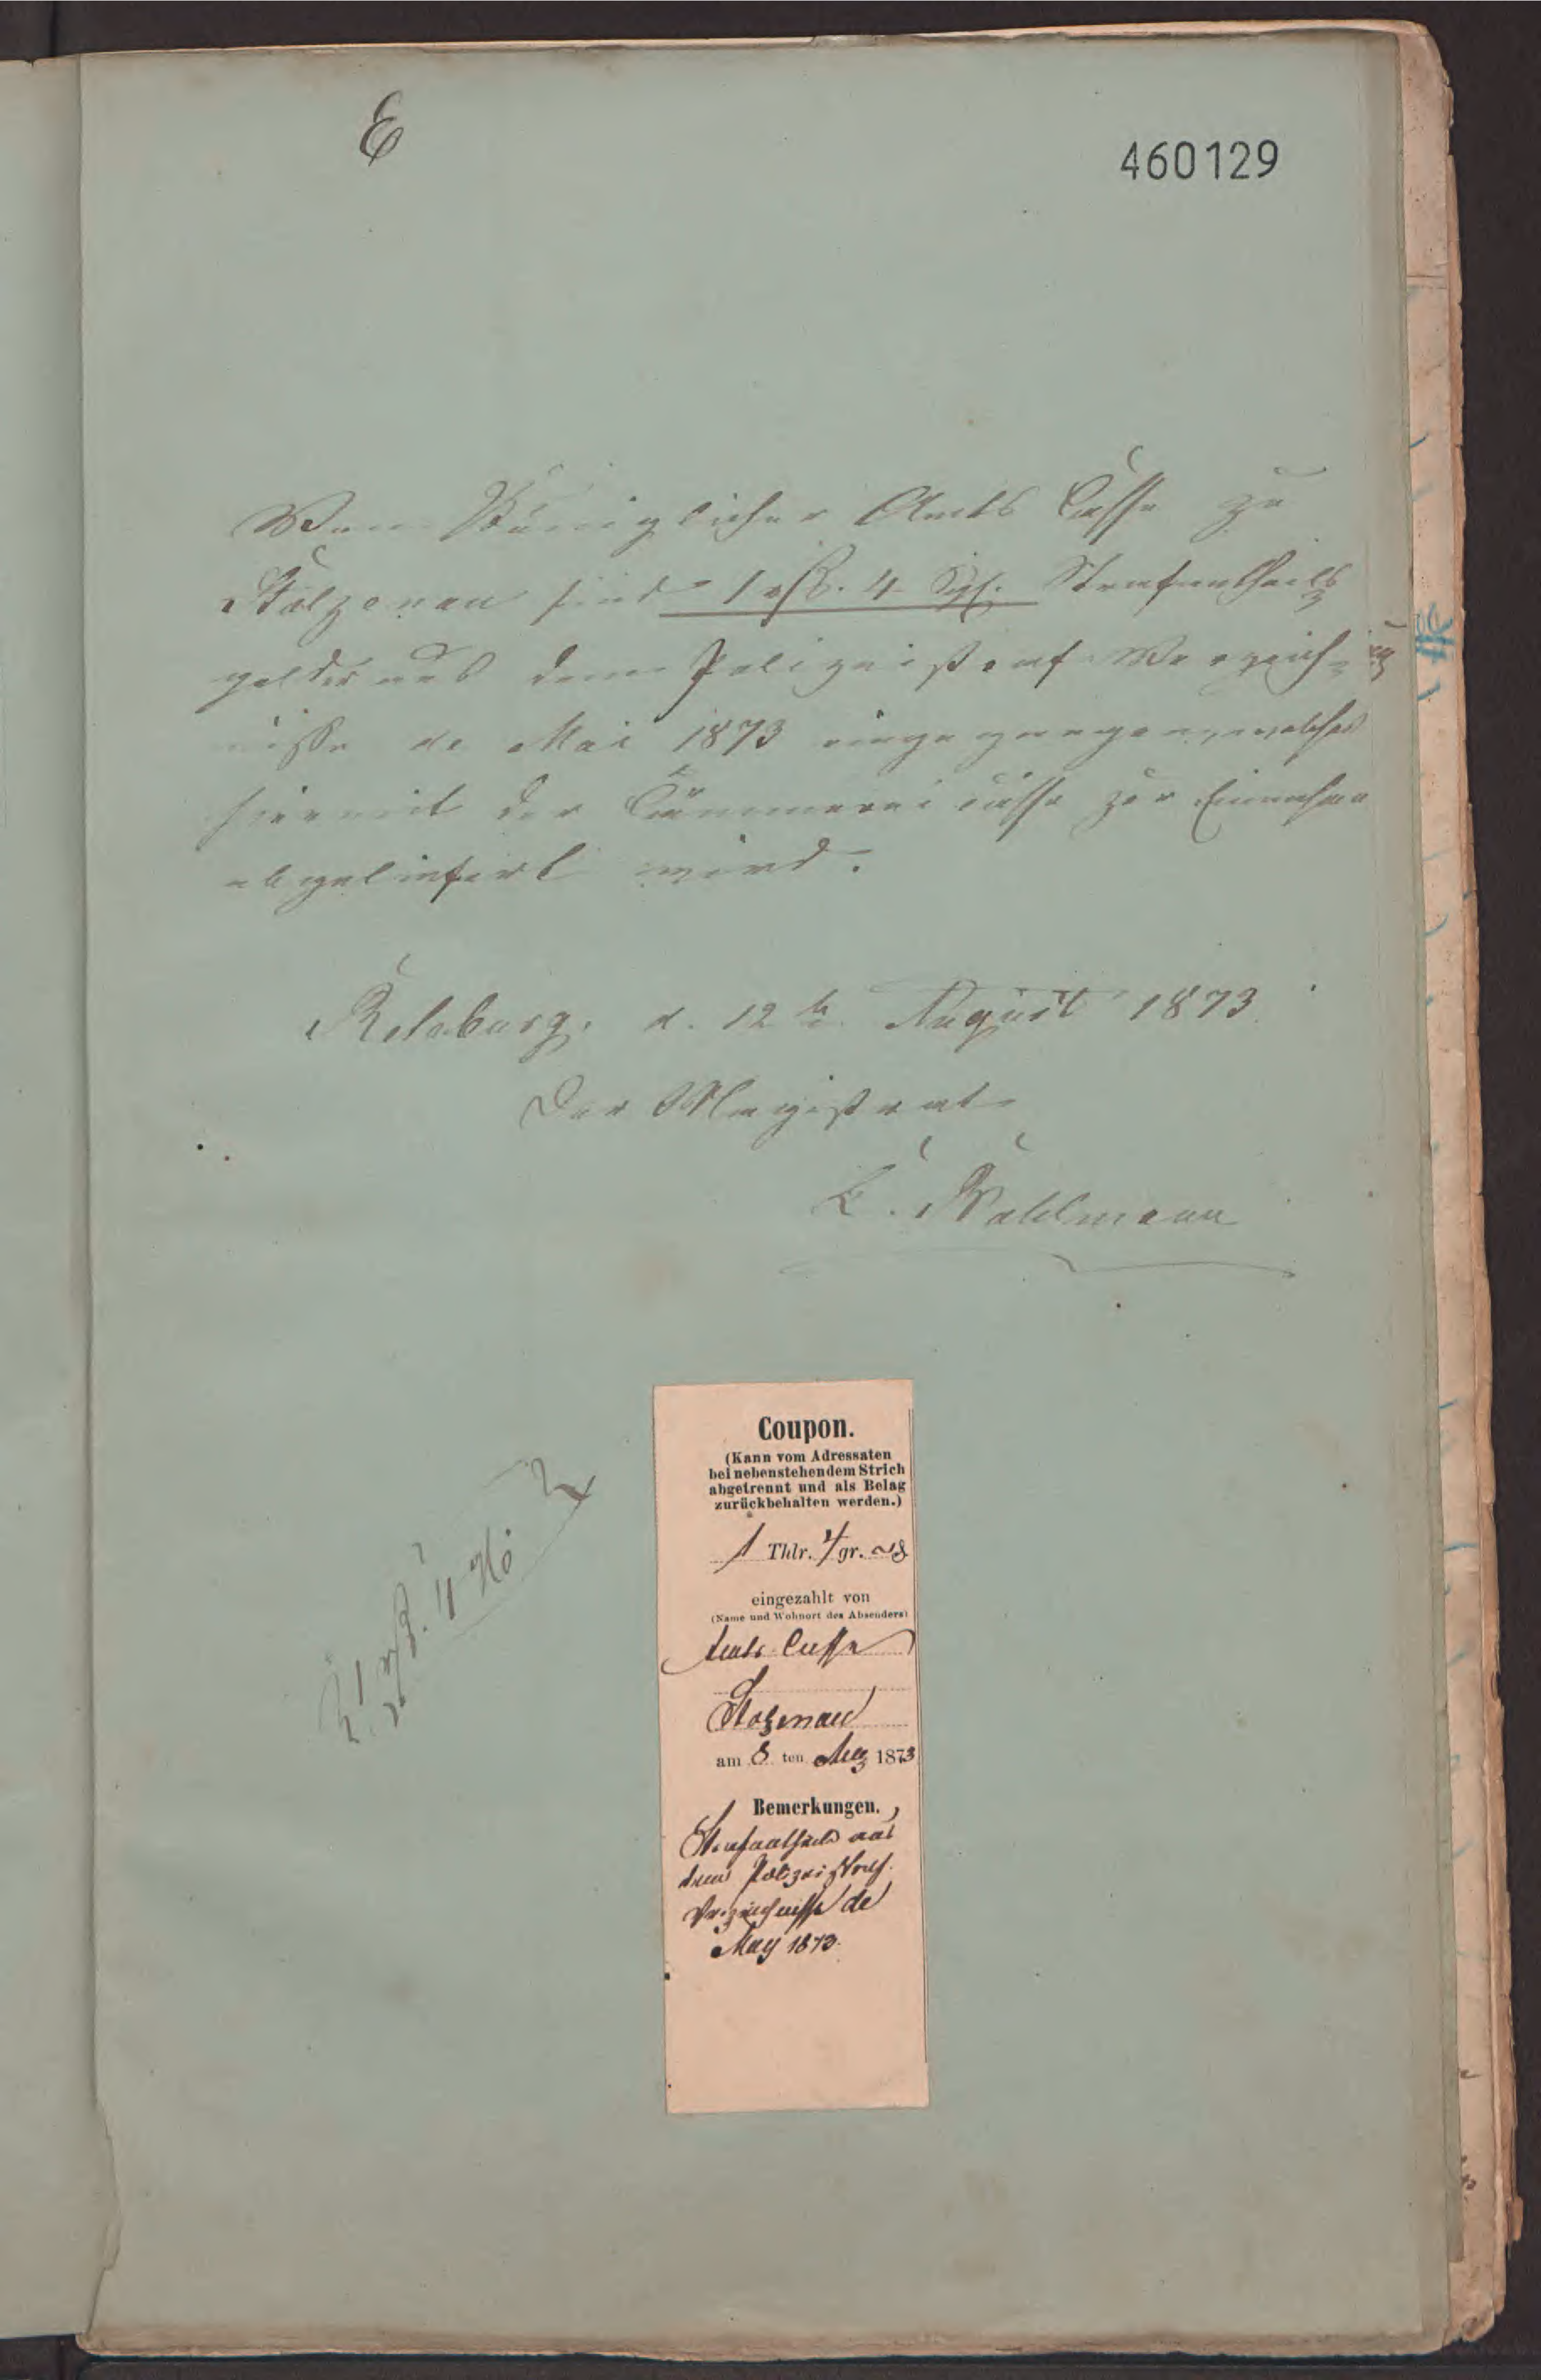 E
460129
Von Königlicher Amts Casse zu
Stolzenau sind 1 rß. 4 Sgl. Strafantheils
gelder aus dem Polizeistraf Verzeich-
nisse de Mai 1873 eingegangen, welches
hiermit der Cämmerei casse zur Einnahme
abgeliefert wird.
Rehburg, d. 12 te August 1873
Der Magistrat
Wahlmann
1 rß. 4
Coupon.
(Kann vom Adressaten
bei nebenstehendem Strich
abgetrennt und als Belag
zurückbehalten werden.)
1 Thlr. 4 gr.
eingezahlt von
(Name und Wohnort des Absenders)
Amts Casse
Stolzenau
am 8 ten Aug 1873
Bemerkungen.
Strafantheile aus
dem Polizeistraf.
Verzeichnisse de
May 1873.